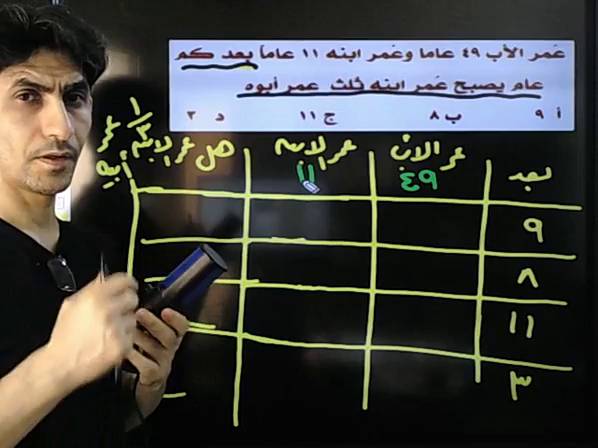 عُمر الأب ٤٩ عاما وعُمر ابنه ١١ عاماً بعد كم
عام يصبح عُمر ابنه ثلث عمر أبوه
أ ٩ ب ٨ ج ١١ د ٣
بعد عمر الاب عمر الابن هل عمر الابن ١/٣ عمر أبيه
٤٩ ١١
٩
٨
١١
٣